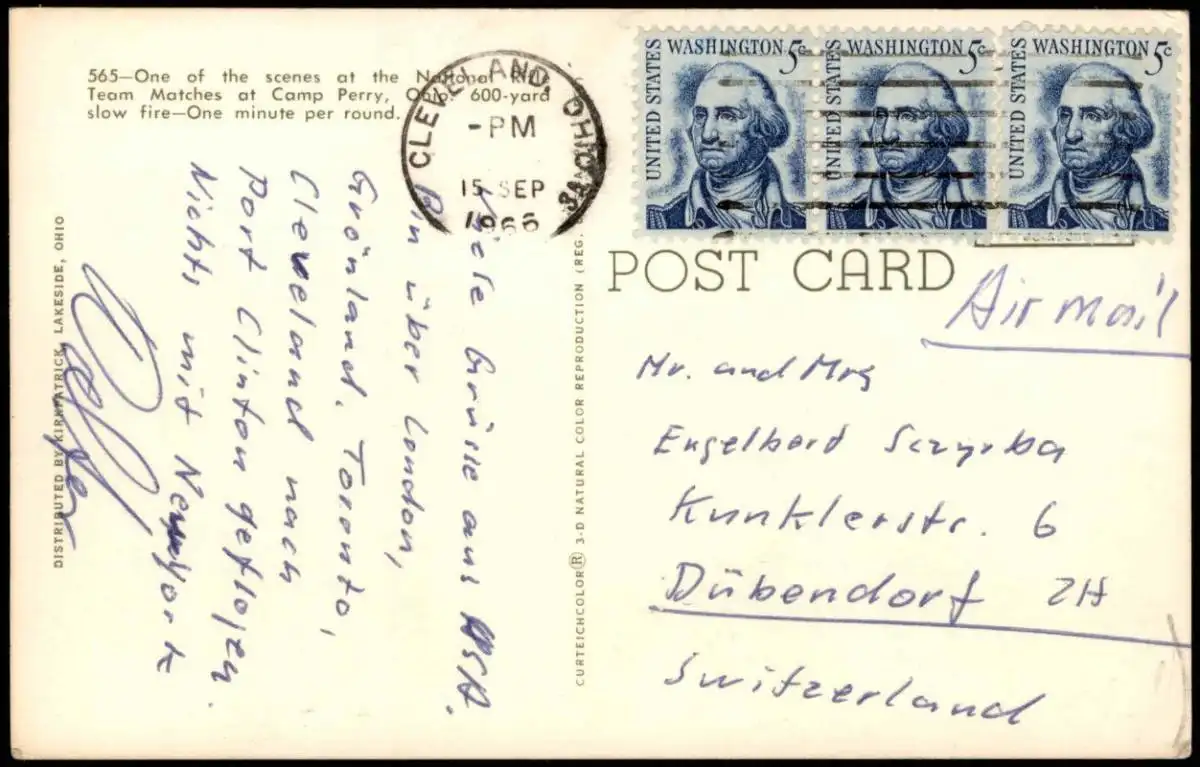 565—One of the scenes at the National Rifle
Team Matches at Camp Perry, Ohio. 600-yard
slow fire—One minute per round.
CLEVELAND, OHIO
-PM
15 SEP
1966
UNITED STATES
WASHINGTON 5c
UNITED STATES
WASHINGTON 5c
UNITED STATES
WASHINGTON 5c
POST CARD
Air mail
Viele Grüsse aus USA.
Bin über London,
Grönland, Toronto,
Cleveland nach
Port Clinton geflogen
Nichts mit New York.
Mr. and Mrs
Engelbord Sczyrba
Kunklerstr. 6
Dübendorf ZH
Switzerland
DISTRIBUTED BY KIRKPATRICK, LAKESIDE, OHIO
CURTEICHCOLOR® 3-D NATURAL COLOR REPRODUCTION (REG.